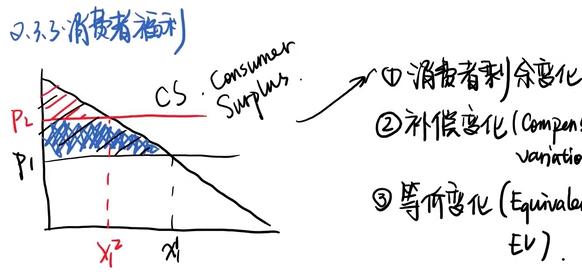 2.3.3.消费者福利
CS. Consumer
Surplus.
P₂
P₁
X₁²
X₁¹
① 消费者剩余变化
② 补偿变化 (Compens
variatio
③ 等价变化 (Equivale
EV).